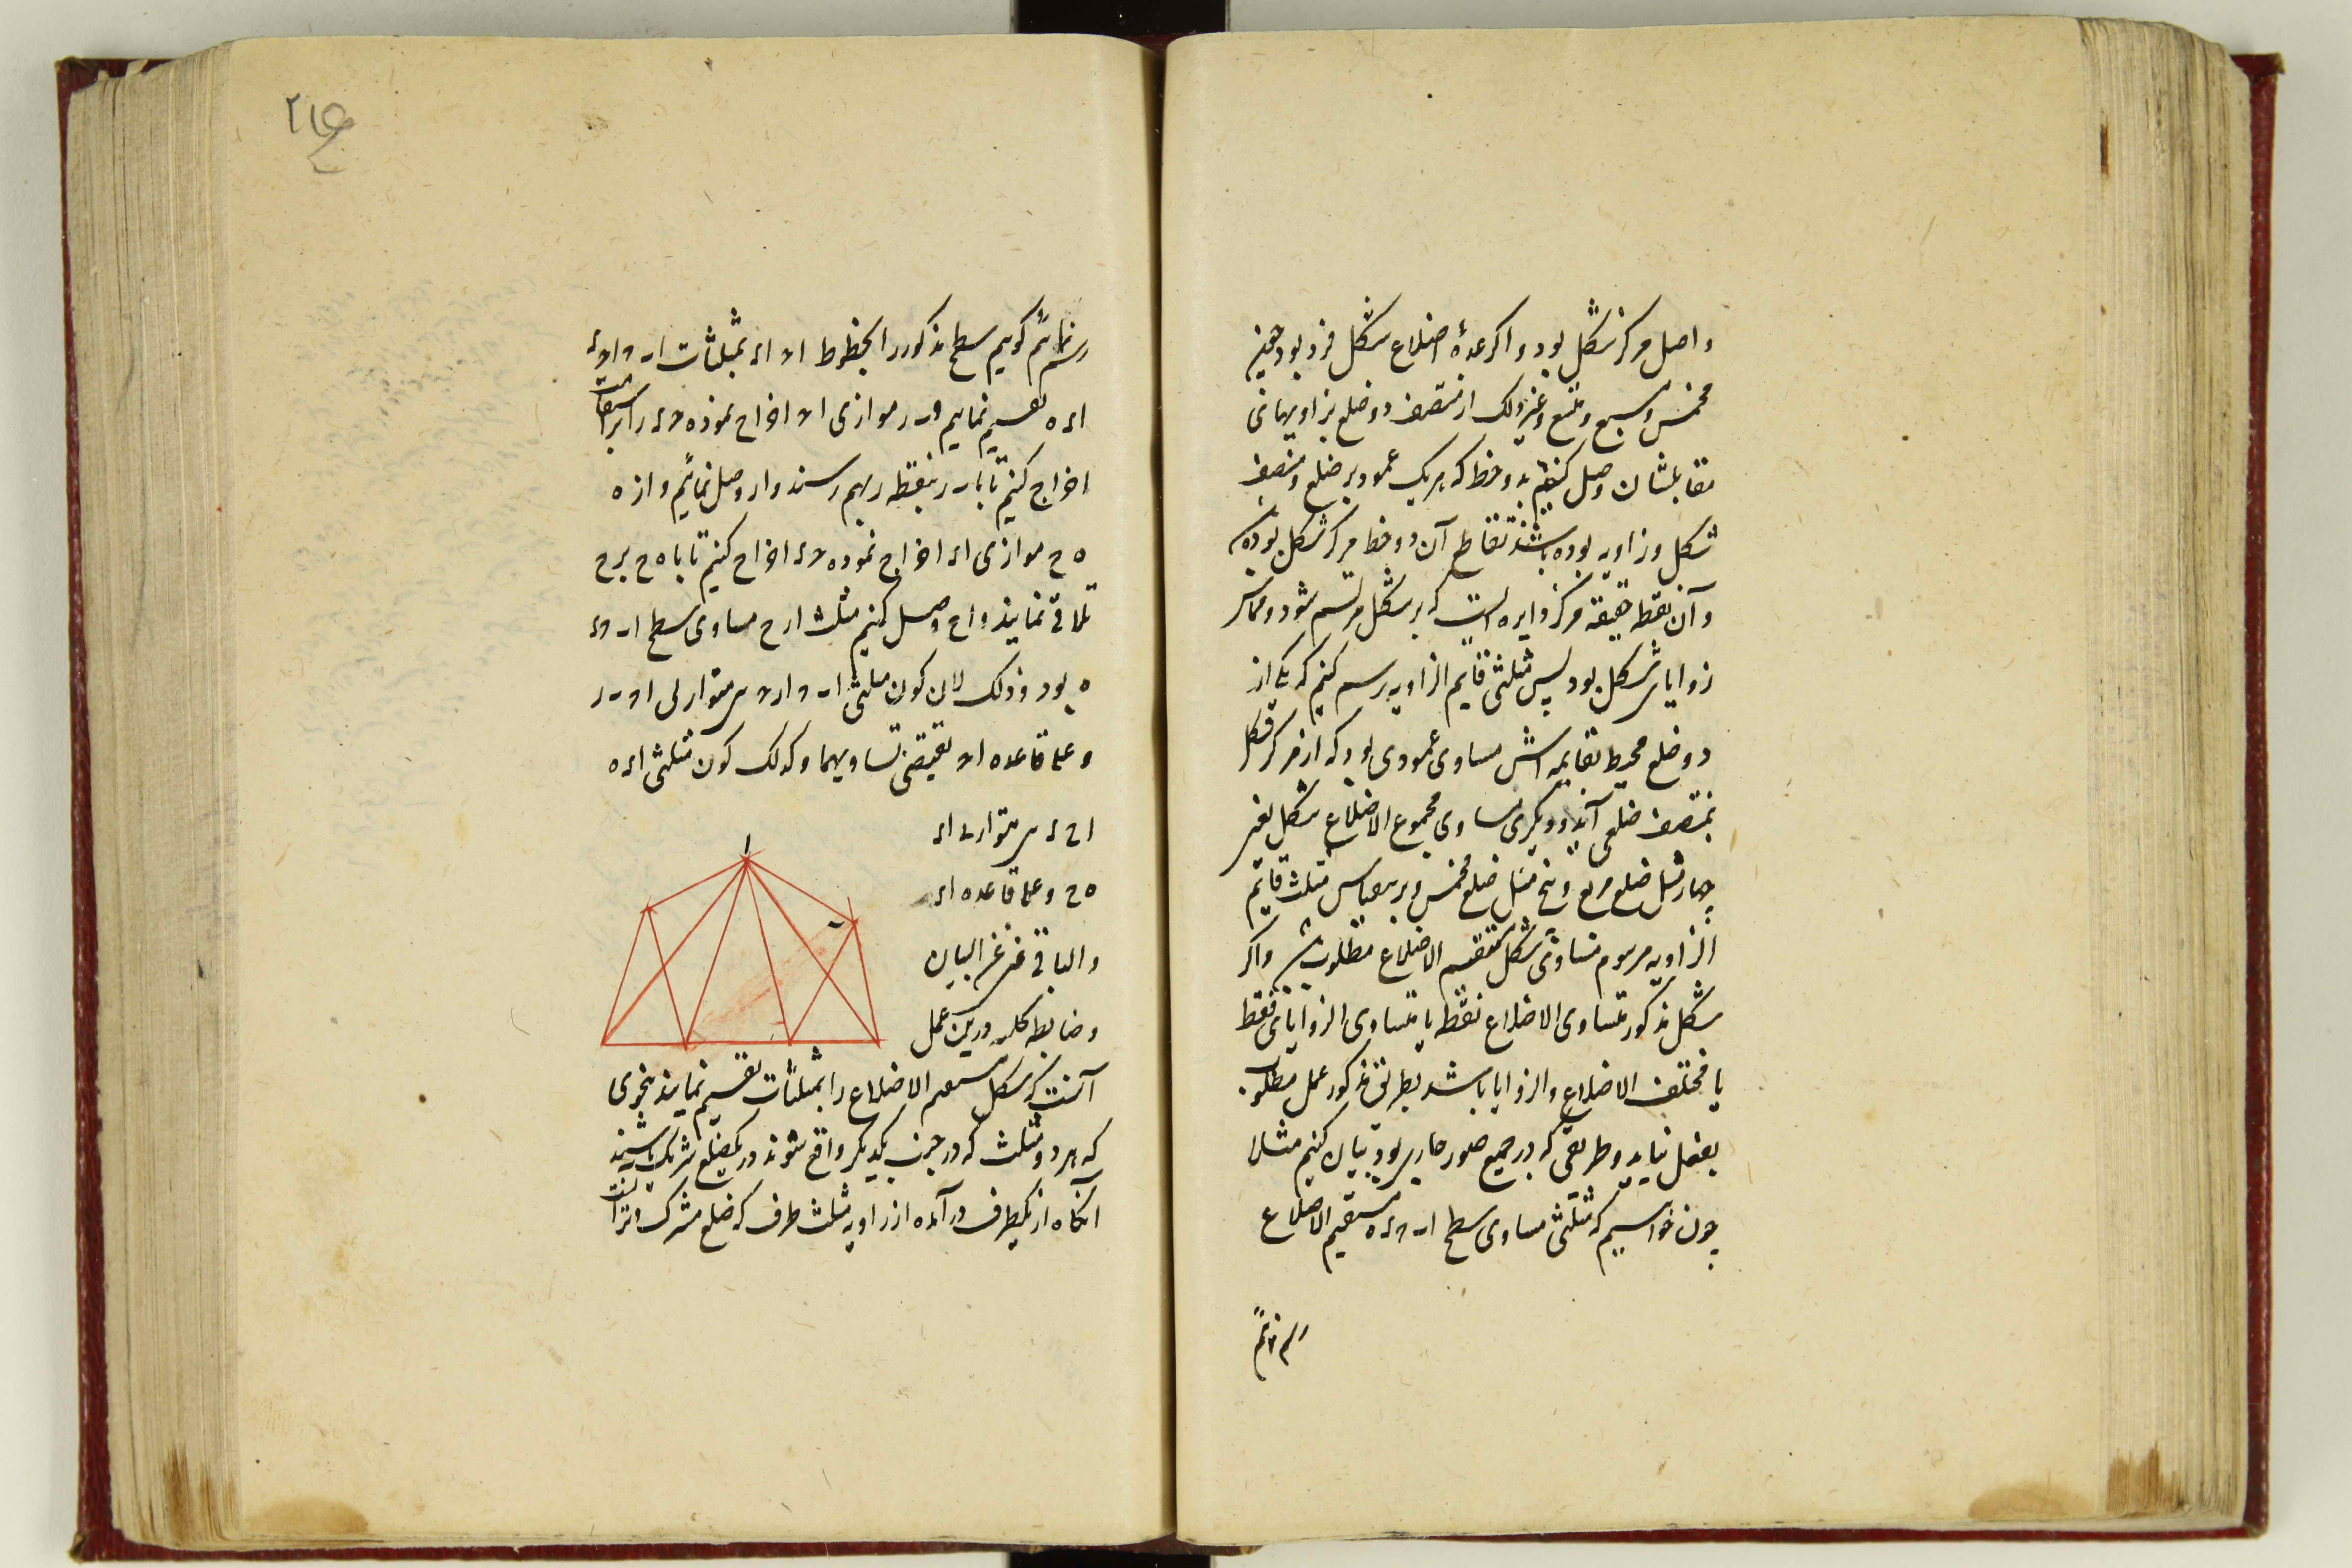 واصل مرکز شکل بود و اگر عدهٔ اضلاع شکل فرد بود چون
مخمس و مسبع و متسع و غیر ذلک از منتصف دو ضلع بزاویهای
مقابلشان وصل کنیم بدو خط که هر یک عمود بر ضلع و منصف
شکل و زاویه بوده باشند تقاطع آن دو خط مرکز شکل بوده
و آن نقطه حقیقة مرکز دایره است که بر شکل مرتسم شود و مماس
زوایای شکل بود پس مثلثی قایم الزاویه رسم کنیم که یکی از
دو ضلع محیط بقایمه اش مساوی عمودی بود که از مرکز شکل
بمنتصف ضلعی آید و دیگری مساوی مجموع الاضلاع شکل یعنی
چهار مثل ضلع مربع و پنج مثل ضلع مخمس و برین قیاس مثلث قایم
الزاویه مرسوم مساوی شکل مستقیم الاضلاع مطلوب و اگر
شکل مذکور متساوی الاضلاع فقط یا متساوی الزوایای فقط
یا مختلف الاضلاع والزوایا باشد بطریق مذکور عمل مطلوب
بفعل نیاید و طریقی که در جمیع صور جاری بود بیان کنیم مثلا
چون خواسیم که مثلثی مساوی سطح ا ب ح د ه مستقیم الاضلاع
رسم نمائیم
۲۱۵
رسم نمائیم گوییم سطح مذکور را بخطوط ا ح ا د بمثلثات ا ب ح ا ح د
ا د ه تقسیم نماییم و ب ر موازی ا ح اخراج نموده ح د را بر استقامت
اخراج کنیم تا با ب ر بنقطه ر بهم رسند و ا ر وصل نمائیم و از ه
ه ح موازی ا د اخراج نموده ح د اخراج کنیم تا با ه ح بر ح
تلاقی نمایند و ا ح وصل کنیم مثلث ا ر ح مساوی سطح ا ب ح د
ه بود و ذلک لان کون مثلثی ا ب ح ا ر ح بین متوازیی ا ح ب ر
و علی قاعده ا ح یقتضی تساویهما و کذلک کون مثلثی ا د ه
ا ح د بین متوازیی ا د
ه ح و علی قاعده ا د
والباقی غنی عن البیان
و ضابطه کلیه درین عمل
آنست که شکل مستقیم الاضلاع را بمثلثات تقسیم نمایند بنحوی
که هر دو مثلث که در جنب یکدیگر واقع شوند در یکضلع شریک باشند
آنگاه از یکطرف در آمده از زاویه مثلث طرف که ضلع مشترک وتر آنست
ا
ب